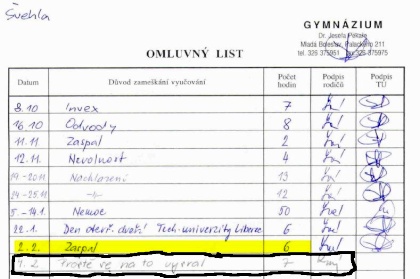 Švehla
GYMNÁZIUM
Dr. Josefa Pekaře
Mladá Boleslav, Palackého 211
OMLUVNÝ LIST
tel. 326 375951 326 375975
Datum Důvod zameškání vyučování Počet hodin Podpis rodičů Podpis TU
8.10 Invex 7
16.10 Odvody 8
11.11 Zaspal 2
12.11. Nevolnost 4
19.-20.11 Nachlazení 13
24-25.11 -11- 12
5.-14.1. Nemoc 50
22.1. Den otevř. dveří Tech. univerzity Liberec 6
2.2. Zaspal 6
2. Prostě se na to vysral 7